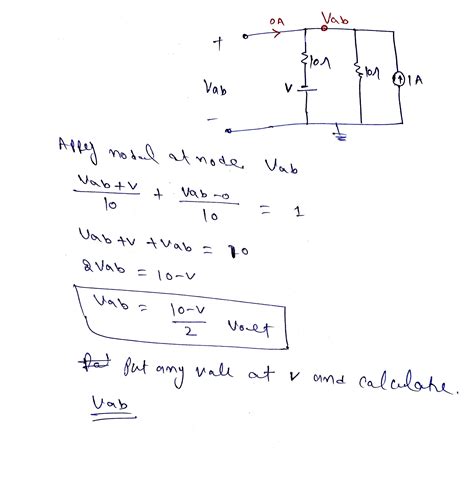 0A Vab
+
10Ω 10Ω 1A
Vab V
-
Apply nodal at node Vab
Vab+V/10 + Vab-0/10 = 1
Vab+V+Vab = 10
2Vab = 10-V
Vab = 10-V/2 Volt
Put any vale at V and calculate.
Vab